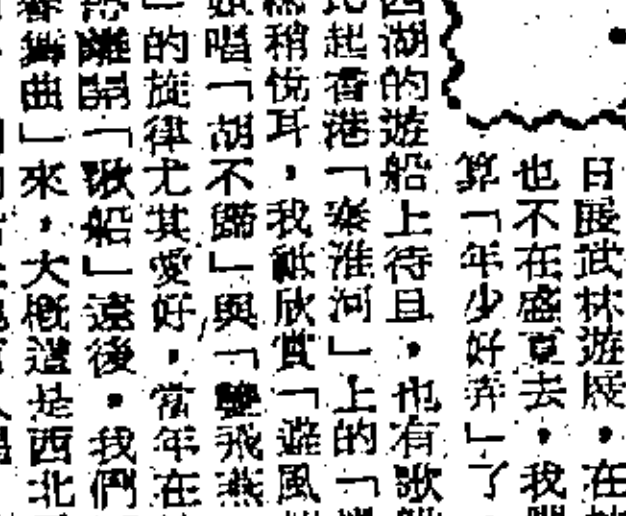 日展武林遊展，在
也不在盛夏去，我
算「年少好弄」了
西湖的遊船上待旦，也有歌
比起香港「秦淮河」上的「
稍悅耳，我祇欣賞「遊
唱「胡不歸」與「雙飛燕
」的旋律尤其愛好，當年在
離開「歌船」遠後，我們
舞曲」來，大概這是西北